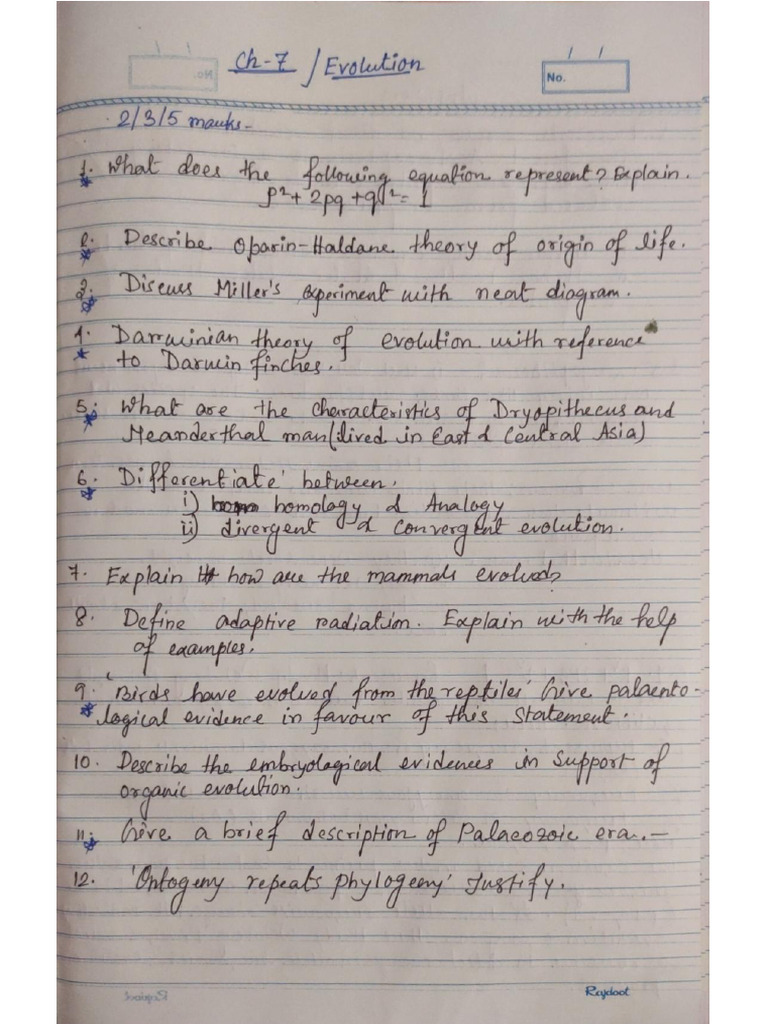 Ch-7 / Evolution
No.
2/3/5 marks-
1. What does the following equation represent? Explain.
p²+ 2pq +q²= 1
2. Describe Oparin-Haldane theory of origin of life.
3. Discuss Miller's experiment with neat diagram.
4. Darwinian theory of evolution with reference
to Darwin finches.
5. What are the characteristics of Dryopithecus and
Neanderthal man (lived in East & Central Asia)
6. Differentiate between.
i) homology & Analogy
ii) divergent & convergent evolution.
7. Explain how are the mammals evolved?
8. Define adaptive radiation. Explain with the help
of examples.
9. 'Birds have evolved from the reptiles' Give palaento-
logical evidence in favour of this statement.
10. Describe the embryological evidences in support of
organic evolution.
11. Give a brief description of Palaeozoic era.-
12. 'Ontogeny repeats phylogeny' Justify.
Rajdoot